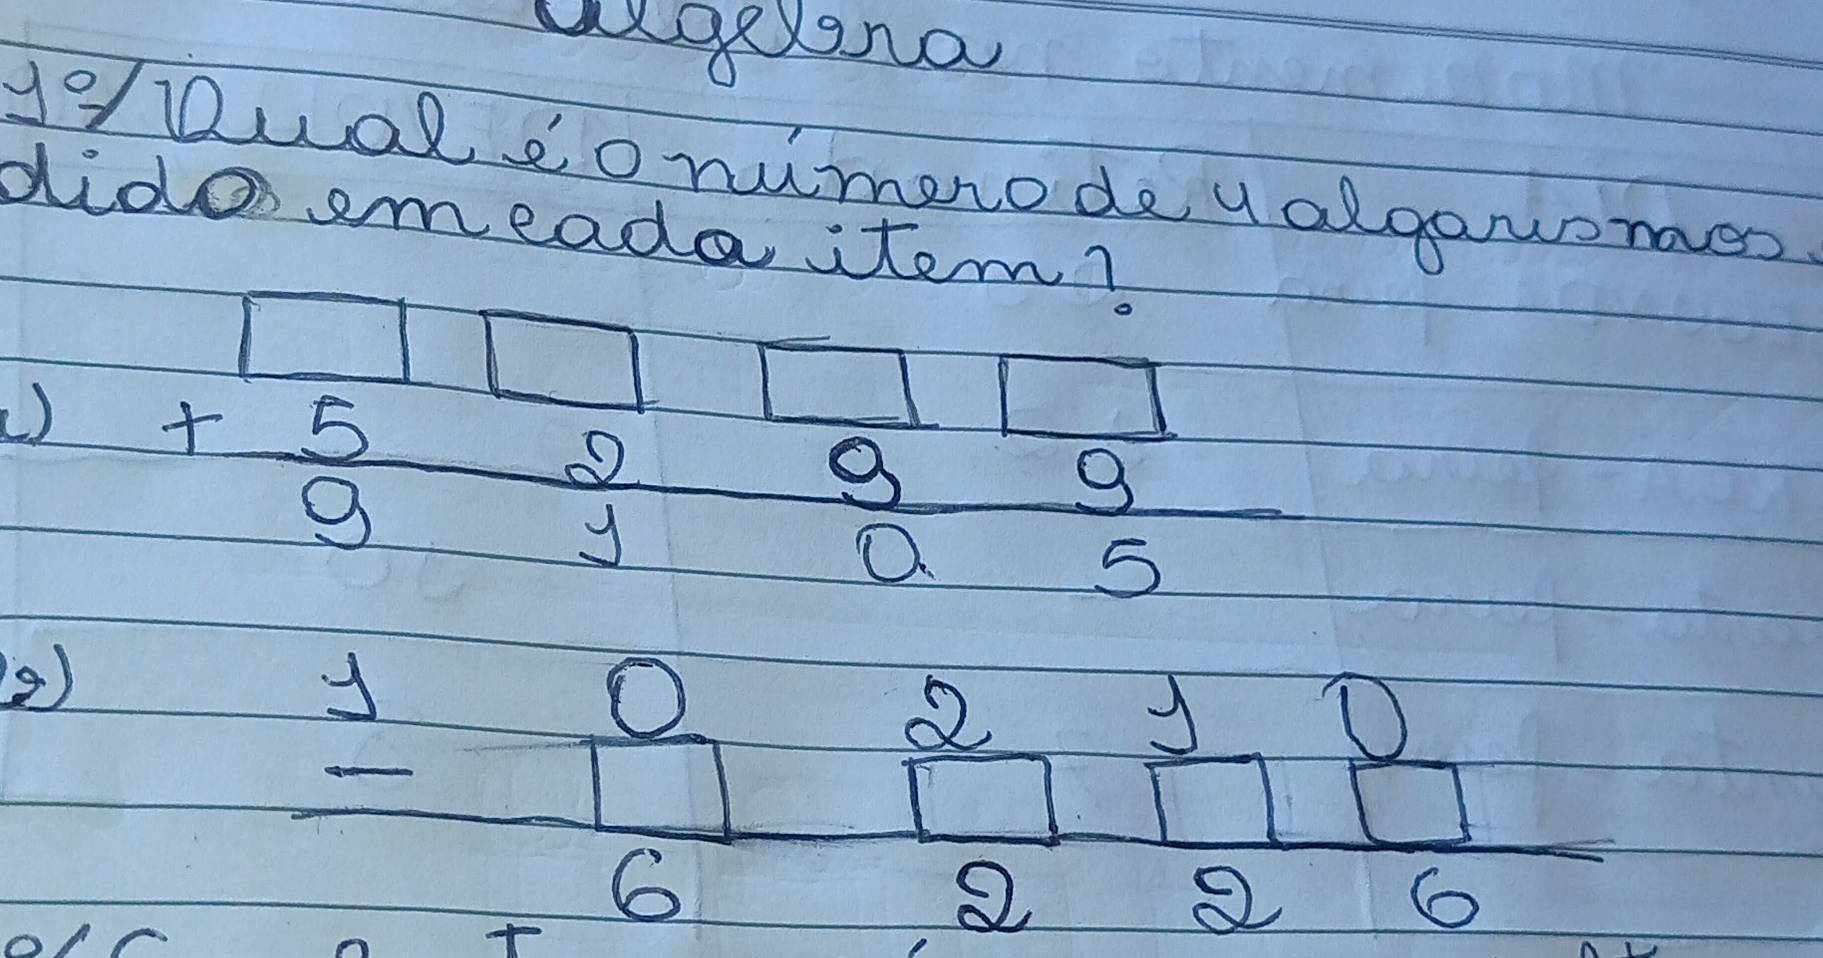 algebra
1º/ Qual é o número de 4 algarismos
dido em cada item?
+ 5 2 9 9
9 1 0 5
2) 1 0 2 1 0
-
6 2 2 6